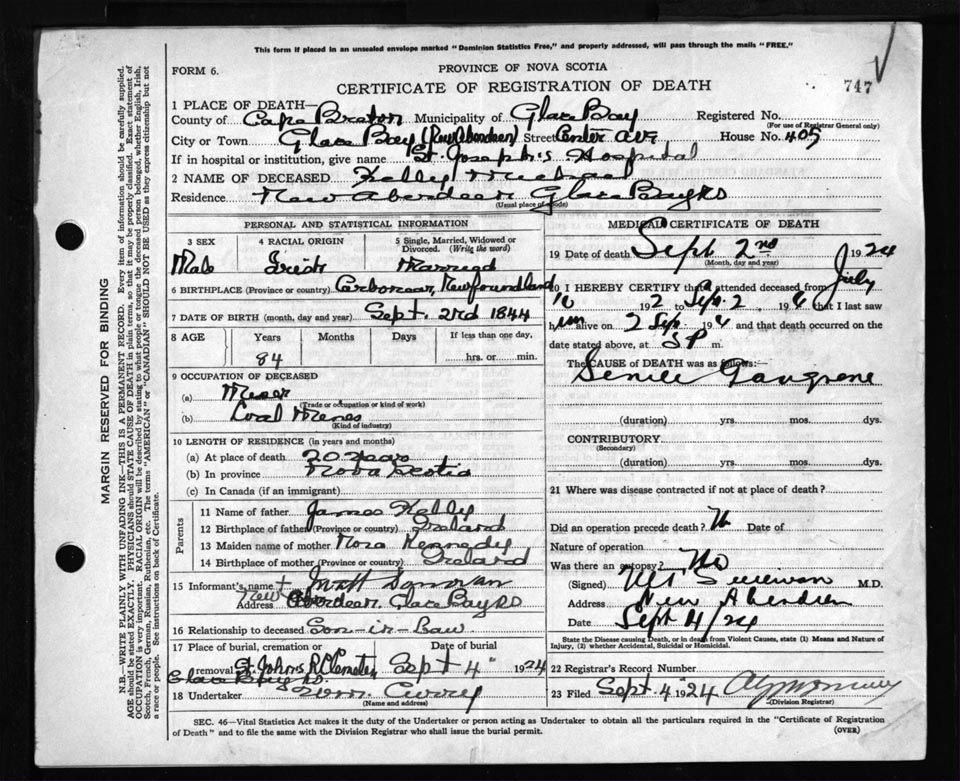 This form if placed in an unsealed envelope marked "Dominion Statistics Free," and properly addressed, will pass through the mails "FREE."
FORM 6.
PROVINCE OF NOVA SCOTIA
CERTIFICATE OF REGISTRATION OF DEATH
747
1 PLACE OF DEATH—
County of Cape Breton Municipality of Glace Bay Registered No.
(For use of Registrar General only)
City or Town Glace Bay (New Aberdeen) Street Center Ave House No. 405
If in hospital or institution, give name St. Joseph's Hospital
2 NAME OF DECEASED Kelly Michael
Residence New Aberdeen Glace Bay NS
(Usual place of abode)
PERSONAL AND STATISTICAL INFORMATION
3 SEX 4 RACIAL ORIGIN 5 Single, Married, Widowed or Divorced. (Write the word)
Male Irish Married
6 BIRTHPLACE (Province or country) Carbonear, Newfoundland
7 DATE OF BIRTH (month, day and year) Sept. 2rd 1844
8 AGE Years Months Days If less than one day,
84 hrs. or min.
9 OCCUPATION OF DECEASED
(a) Miner
(Trade or occupation or kind of work)
(b) Coal Mines
(Kind of industry)
10 LENGTH OF RESIDENCE (in years and months)
(a) At place of death 20 years
(b) In province Nova Scotia
(c) In Canada (if an immigrant)
Parents
11 Name of father James Kelly
12 Birthplace of father (Province or country) Ireland
13 Maiden name of mother Nora Kennedy
14 Birthplace of mother (Province or country) Ireland
15 Informant's name + Matt Donovan
Address New Aberdeen, Glace Bay NS
16 Relationship to deceased Son-in-Law
17 Place of burial, cremation or removal St Johns R C Cemetery Date of burial Sept 4" 1924
Glace Bay NS.
18 Undertaker Curry
(Name and address)
MEDICAL CERTIFICATE OF DEATH
19 Date of death Sept 2nd 1924
(Month, day and year)
20 I HEREBY CERTIFY that I attended deceased from July
16 192 to Sep. 2 1924 that I last saw
him alive on 2 Sep. 1924 and that death occurred on the
date stated above, at 5 P m.
The CAUSE OF DEATH was as follows:—
Senile Gangrene
(duration) yrs. mos. dys.
CONTRIBUTORY
(Secondary)
(duration) yrs. mos. dys.
21 Where was disease contracted if not at place of death?
Did an operation precede death? No Date of
Nature of operation
Was there an autopsy? No
(Signed) Sullivan M.D.
Address New Aberdeen
Date Sept 4/24
State the Disease causing Death, or in death from Violent Causes, state (1) Means and Nature of Injury, (2) whether Accidental, Suicidal or Homicidal.
22 Registrar's Record Number
23 Filed Sept. 4 1924
(Division Registrar)
SEC. 46—Vital Statistics Act makes it the duty of the Undertaker or person acting as Undertaker to obtain all the particulars required in the "Certificate of Registration
of Death" and to file the same with the Division Registrar who shall issue the burial permit.
(OVER)
MARGIN RESERVED FOR BINDING
N.B.—WRITE PLAINLY WITH UNFADING INK—THIS IS A PERMANENT RECORD. Every item of information should be carefully supplied.
AGE should be stated EXACTLY. PHYSICIANS should STATE CAUSE OF DEATH in plain terms, so that it may be properly classified. Exact statement of
OCCUPATION is very important. RACIAL ORIGIN will be described by stating to what people or tongue the deceased person belonged, whether English, Irish,
Scotch, French, German, Russian, Ruthenian, etc. The terms "AMERICAN" or "CANADIAN" SHOULD NOT BE USED as they express citizenship but not
a race or people. See instructions on back of Certificate.